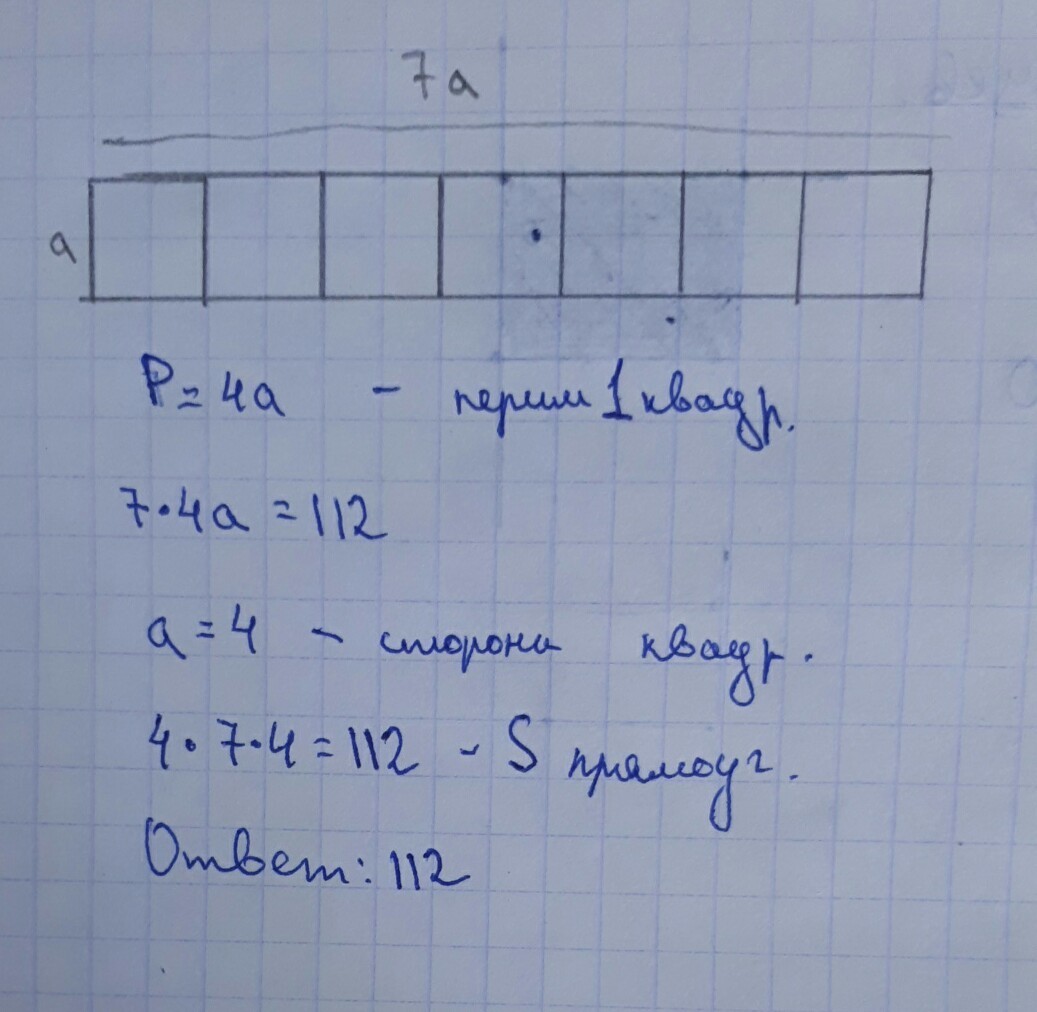 7a
a
P=4a - перим 1 квадр.
7·4a = 112
a = 4 - сторона квадр.
4·7·4 = 112 - S прямоуг.
Ответ: 112